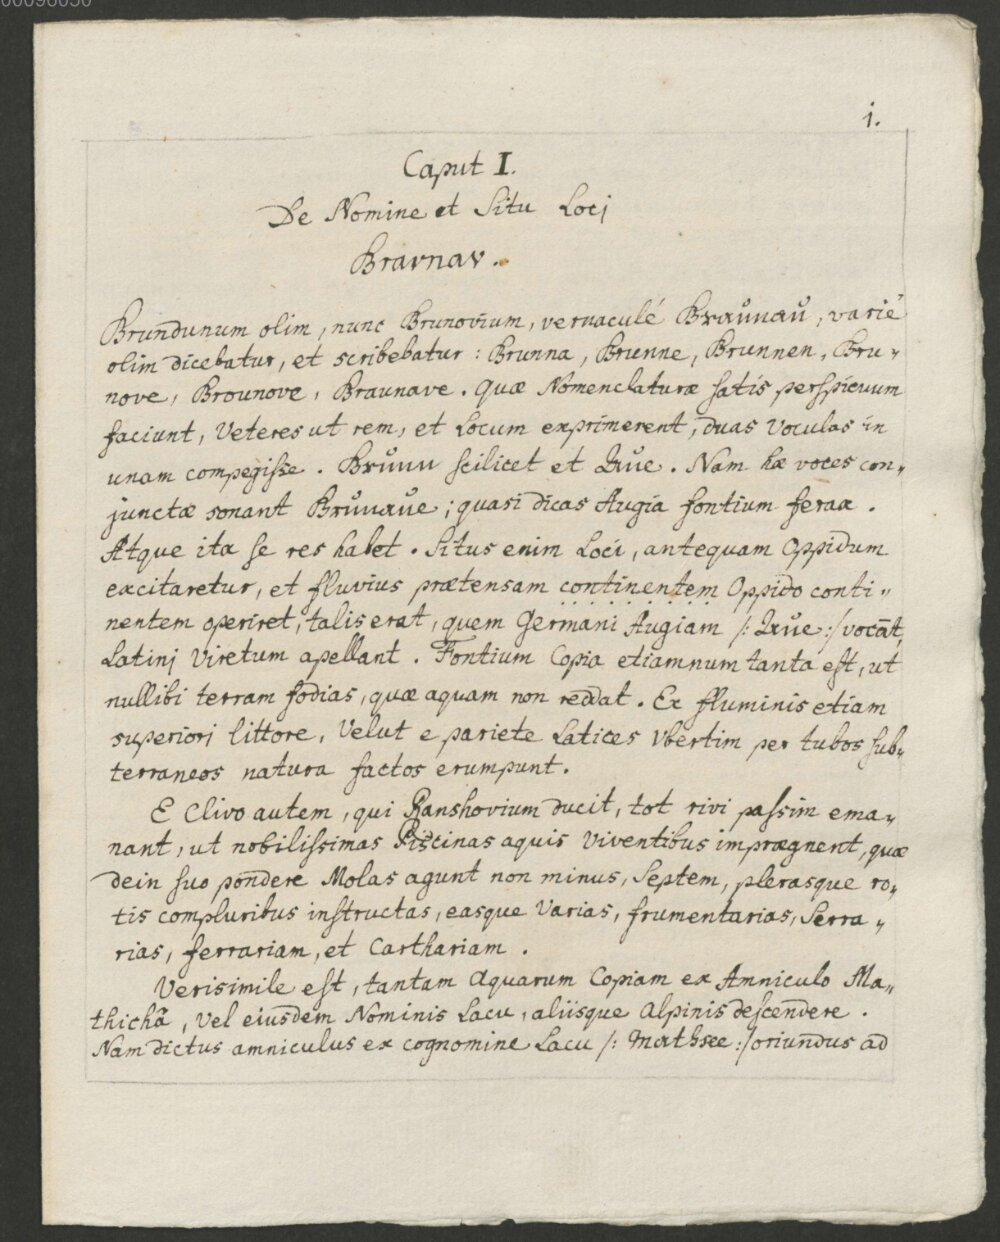 00096050
1.
Caput I.
De Nomine et Situ Locj
Bravnav.
Brundunum olim, nunc Brunovium, vernaculé Braŭnaŭ, varié
olim dicebatur, et scribebatur: Brunna, Brunne, Brunnen, Bru„
nove, Brounove, Braunave. Quæ Nomenclaturæ satis perspicuum
faciunt, Veteres ut rem, et Locum exprimerent, duas Voculas in
unam compegisse. Brŭnn scilicet et Aŭe. Nam hæ voces con„
junctæ sonant Brŭnaŭe; quasi dicas Augia fontium ferax.
Atque ita se res habet. Situs enim Loci, antequam Oppidum
excitaretur, et fluvius prætensam continentem Oppido conti„
nentem operiret, talis erat, quem Germani Augiam /: Aŭe :/ vocāt,
Latinj Viretum apellant. Fontium Copia etiamnum tanta est, ut
nullibi terram fodias, quæ aquam non reddat. Ex fluminis etiam
superiorj littore, Velut e pariete Latices Vbertim per tubos sub„
terraneos natura factos erumpunt.
E Clivo autem, qui Ranshovium ducit, tot rivi passim ema„
nant, ut nobilissimas Piscinas aquis Viventibus imprægnent, quæ
dein suo pondere Molas agunt non minus, Septem, plerasque ro„
tis compluribus instructas, easque Varias, frumentarias, Serra„
rias, ferrariam, et Carthariam.
Verisimile est, tantam Aquarum Copiam ex Amniculo Ma„
thichâ, Vel eiusdem Nominis Lacu, aliisque Alpinis descendere.
Nam dictus amniculus ex cognomine Lacu /: Mathsee :/ oriundus ad